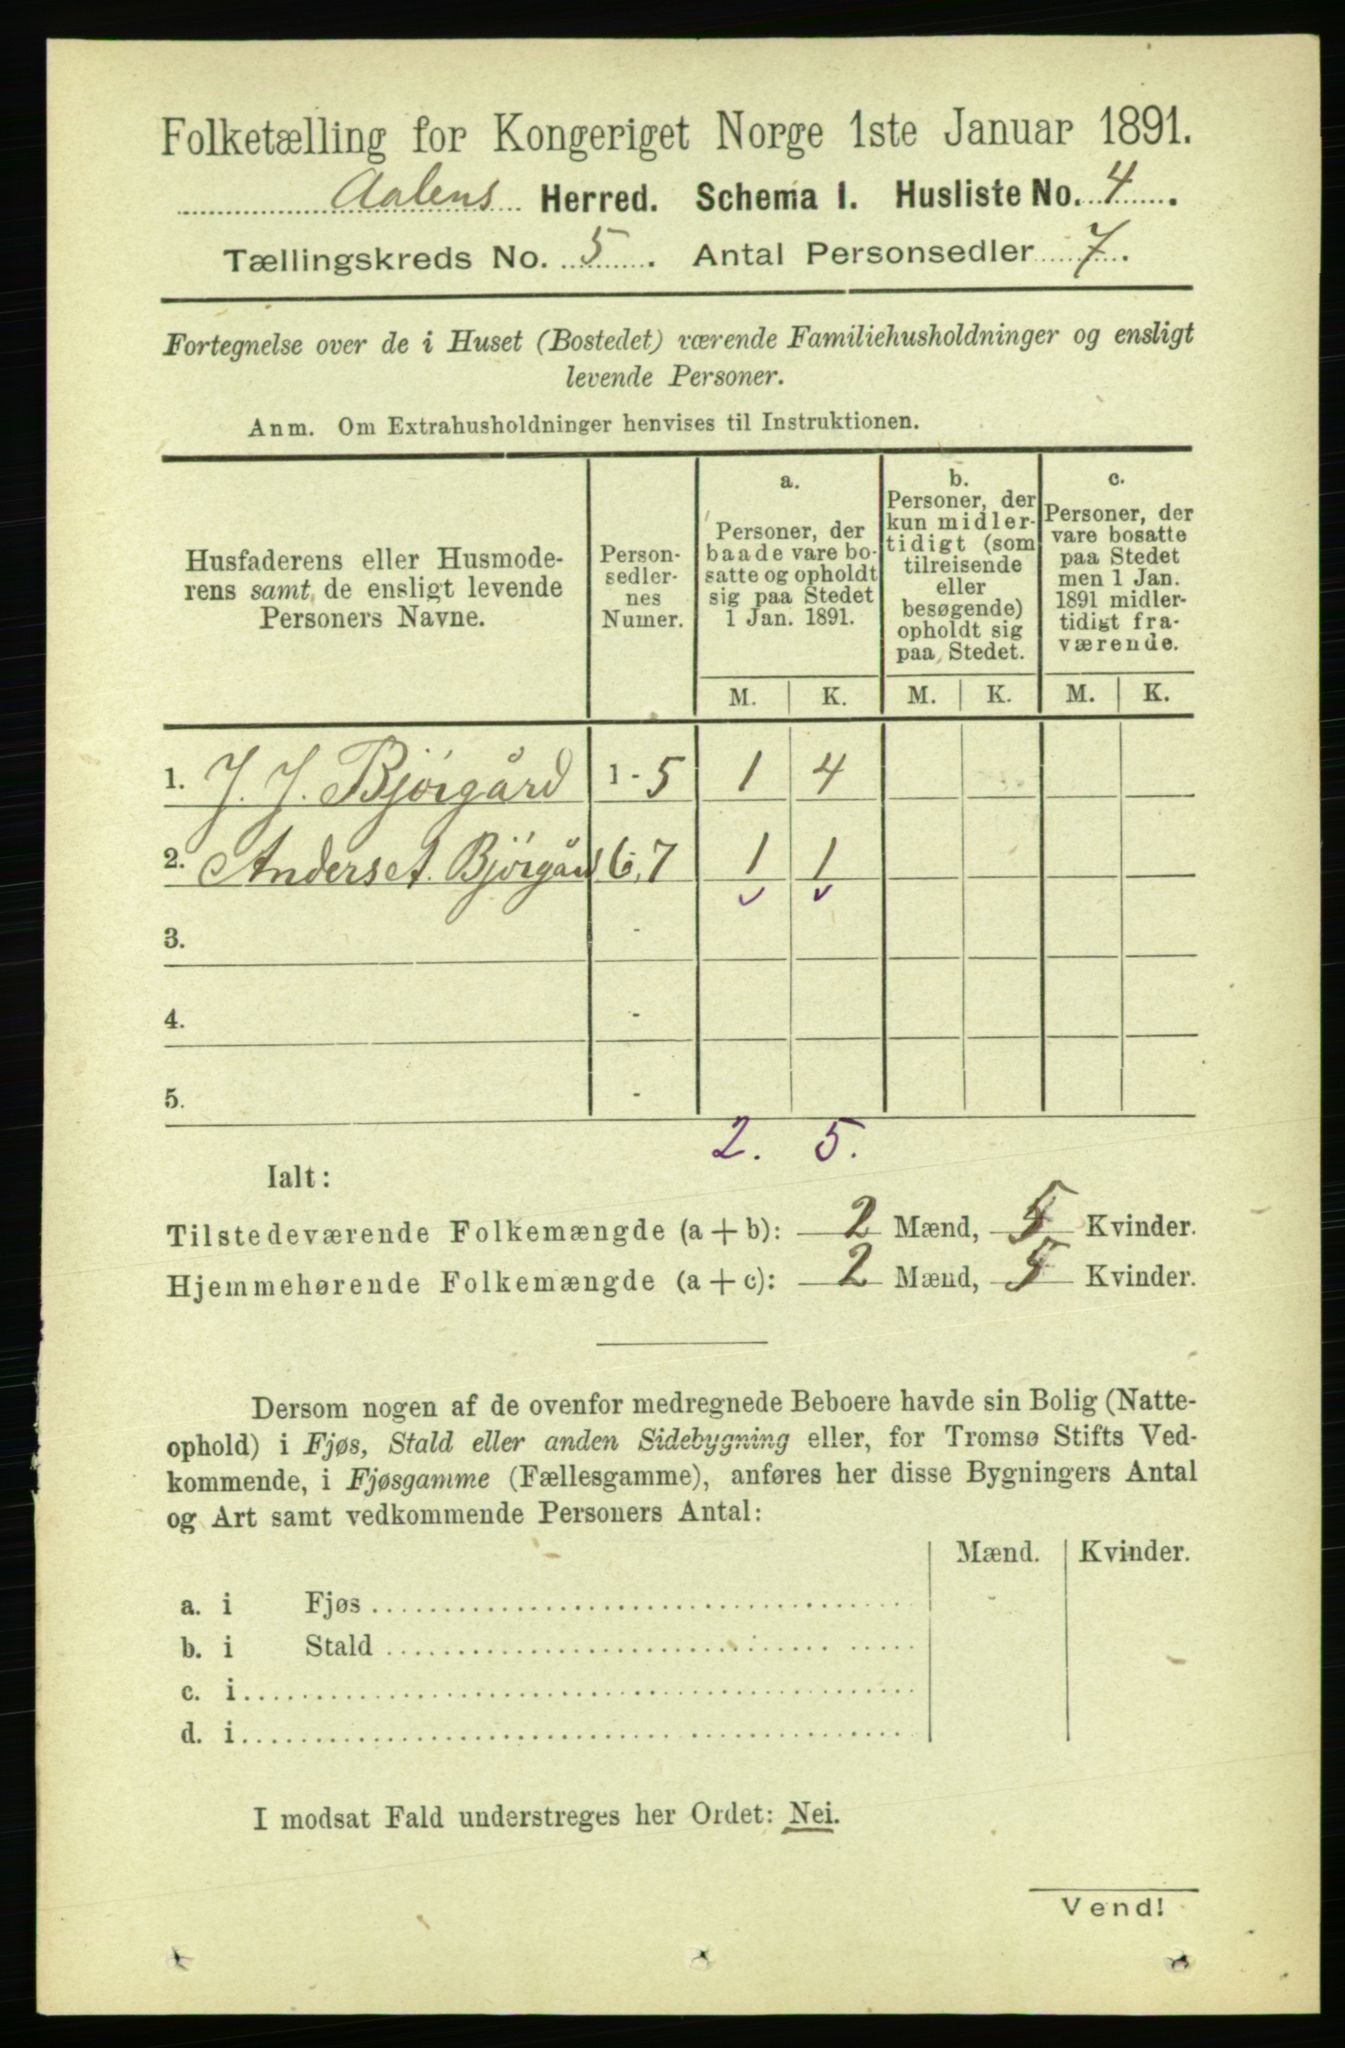 Folketælling for Kongeriget Norge 1ste Januar 1891.
Aalens Herred. Schema I. Husliste No. 4.
Tællingskreds No. 5. Antal Personsedler 7.
Fortegnelse over de i Huset (Bostedet) værende Familiehusholdninger og ensligt
levende Personer.
Anm. Om Extrahusholdninger henvises til Instruktionen.
Husfaderens eller Husmode-
rens samt de ensligt levende
Personers Navne.
Person-
sedler-
nes
Numer.
a.
Personer, der
baade vare bo-
satte og opholdt
sig paa Stedet
1 Jan. 1891.
b.
Personer, der
kun midler-
tidigt (som
tilreisende
eller
besøgende)
opholdt sig
paa Stedet.
c.
Personer, der
vare bosatte
paa Stedet
men 1 Jan.
1891 midler-
tidigt fra-
værende.
M. K. M. K. M. K.
1. J. J. Bjørgård 1 - 5 1 4
2. Anders A. Bjørgård 6, 7 1 1
3. -
4. -
5. -
2. 5.
Ialt:
Tilstedeværende Folkemængde (a + b): 2 Mænd, 5 Kvinder.
Hjemmehørende Folkemængde (a + c): 2 Mænd, 5 Kvinder.
Dersom nogen af de ovenfor medregnede Beboere havde sin Bolig (Natte-
ophold) i Fjøs, Stald eller anden Sidebygning eller, for Tromsø Stifts Ved-
kommende, i Fjøsgamme (Fællesgamme), anføres her disse Bygningers Antal
og Art samt vedkommende Personers Antal:
Mænd. Kvinder.
a. i Fjøs
b. i Stald
c. i
d. i
I modsat Fald understreges her Ordet: Nei.
Vend!